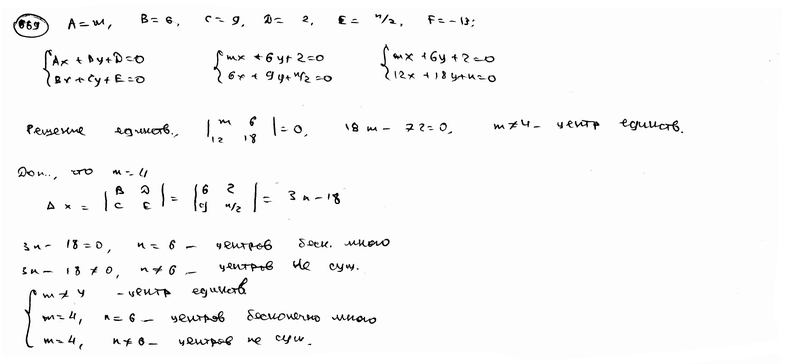 669 A=m, B=6, C=9, D=2, E=n/2, F=-13;
{Ax+By+D=0 {mx+6y+2=0 {mx+6y+2=0
{Bx+Cy+E=0 {6x+9y+n/2=0 {12x+18y+n=0
Решение единств., |m 6| =0, 18m-72=0, m≠4 - центр единств.
|12 18|
Доп.., что m=4
Δx = |B D| = |6 2| = 3n-18
|C E| |9 n/2|
3n-18=0, n=6 - центров беск. много
3n-18≠0, n≠6 - центров не сущ.
{m≠4 - центр единств
{m=4, n=6 - центров бесконечно много
{m=4, n≠6 - центров не сущ.